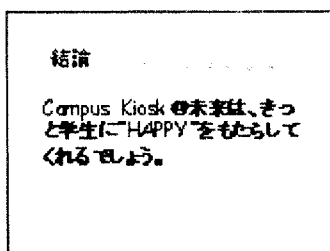 結論
Campus Kiosk の未来は、きっ
と学生に"HAPPY"をもたらして
くれるでしょう。